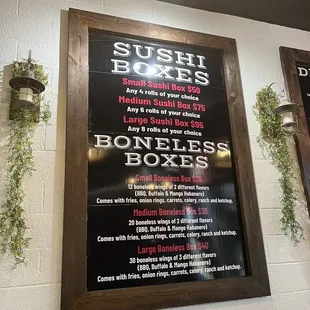 SUSHI
BOXES
Small Sushi Box $50
Any 4 rolls of your choice
Medium Sushi Box $75
Any 6 rolls of your choice
Large Sushi Box $95
Any 8 rolls of your choice
BONELESS
BOXES
Small Boneless Box $20
12 boneless wings of 2 different flavors
(BBQ, Buffalo & Mango Habanero)
Comes with fries, onion rings, carrots, celery, ranch and ketchup.
Medium Boneless Box $30
20 boneless wings of 2 different flavors
(BBQ, Buffalo & Mango Habanero)
Comes with fries, onion rings, carrots, celery, ranch and ketchup.
Large Boneless Box $40
30 boneless wings of 3 different flavors
(BBQ, Buffalo & Mango Habanero)
Comes with fries, onion rings, carrots, celery, ranch and ketchup.